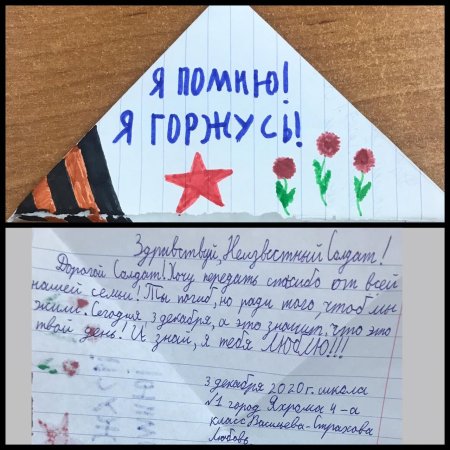 Я ПОМНЮ!
Я ГОРЖУСЬ!
Здравствуй, Неизвестный Солдат!
Дорогой Солдат! Хочу передать спасибо от всей
нашей семьи! Ты погиб, но ради того, чтоб мы
жили. Сегодня 3 декабря, а это значит, что это
твой день! И знай, я тебя ЛЮБЛЮ!!!
3 декабря 2020 г. школа
№1 город Яхрома 4-а
класс Васильева-Страхова
Любовь